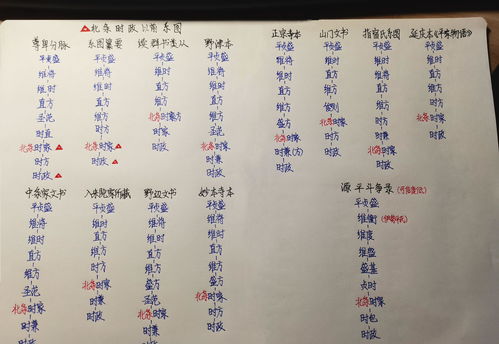 北条时政以前系图
尊卑分脉
平贞盛
维将
维时
直方
圣范
时直
北条时家
时方
时政
系图纂要
平贞盛
维将
维时
直方
维方
时方
北条时家
时政
续群书类从
平贞盛
维时
直方
维方
北条时家方
时家
时政
野津本
平贞盛
维将
维时
直方
维方
圣范
北条时家
时兼
时政
正宗寺本
平贞盛
维将
维时
直方
维方
盛方
北条时家
时兼(方)
时政
山门文书
平贞盛
维时
直方
维方
北条时家
时方
时兼
时政
指宿氏系图
平贞盛
维将
维时
直方
维方
时家
北条时兼
时政
延庆本《平家物语》
平贞盛
维时
直方
维方
北条时家
时政
中条家文书
平贞盛
维将
维时
直方
维方
圣范
北条时家
时兼
时政
入来院家所藏
平贞盛
维时
直方
维方
时方
维方
北条时家
时兼
时政
野辺文书
平贞盛
维将
维时
直方
盛方
圣范
北条时家
时兼
时政
妙本寺本
平贞盛
维将
维时
直方
维方
盛方
北条时家
时方
时政
源平斗争录(可信度低)
平贞盛
维衡(伊势平氏)
维度
维盛
盛基
贞时
北条时家
时包
时政